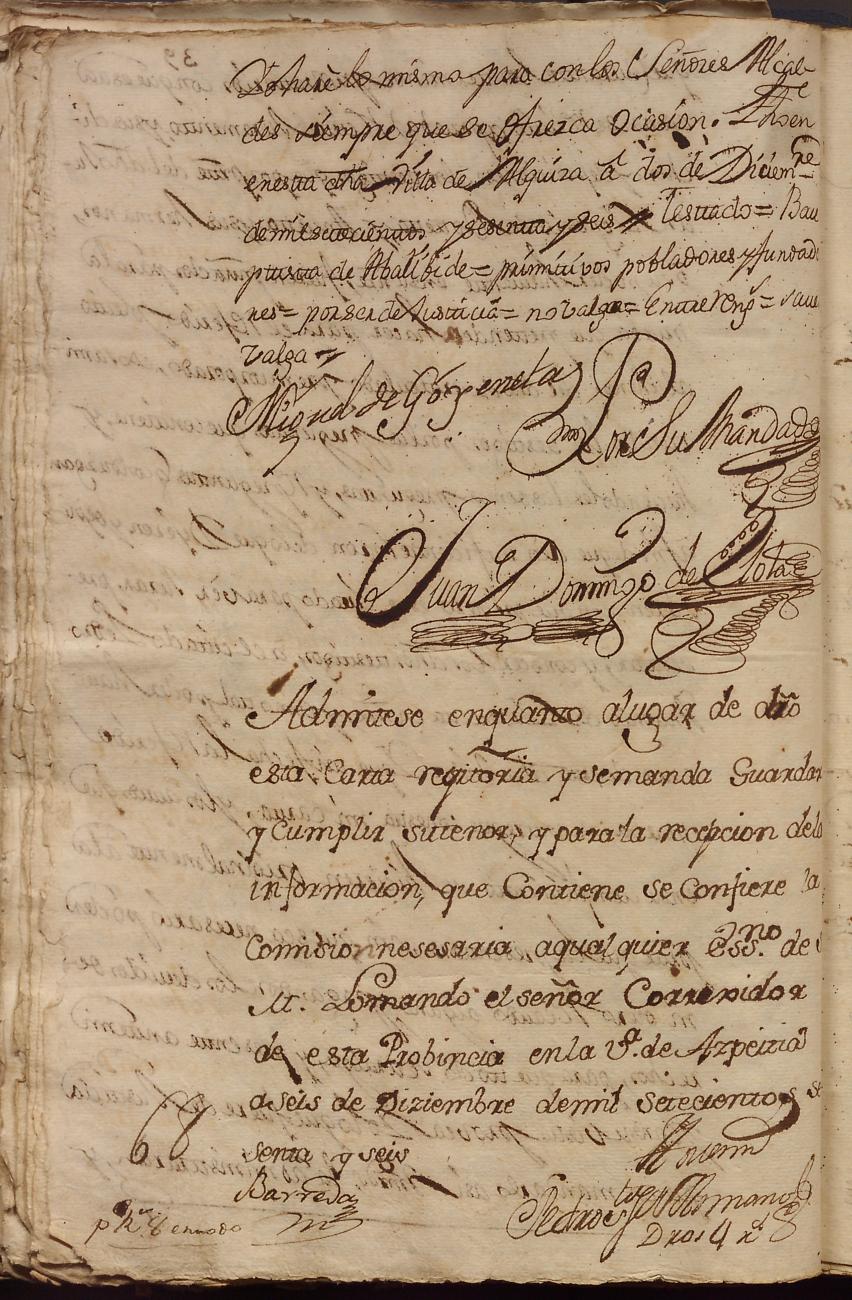 Yo haré lo mismo para con los Señores Alcal-
des siempre que se ofrezca ocasion. fho en
en esta dha Villa de Alquiza á dos de Diciem.re
de mil setecientos y sesenta y seis testado = Bau
ptista de Abalibide = primitivos pobladores y fundado
res = por ser de Justicia = no valga = Entre reng.s =
valga
Miguel de Goyeneta
Por Su Mandado
Juan Domingo de
Admitese en quanto a lugar de dro
esta Carta requitoria y se manda Guardar
y Cumplir su tenor, y para la recepcion de la
informacion, que Contiene se confiere la
Comision nesesaria a qualquier Ess.no de S
M. Lo mando el señor Correxidor
de esta Probincia en la V.a de Azpeitia
a seis de Diziembre de mil setecientos y se
senta y seis
Barreda
Pedro
Dros 4 r.s